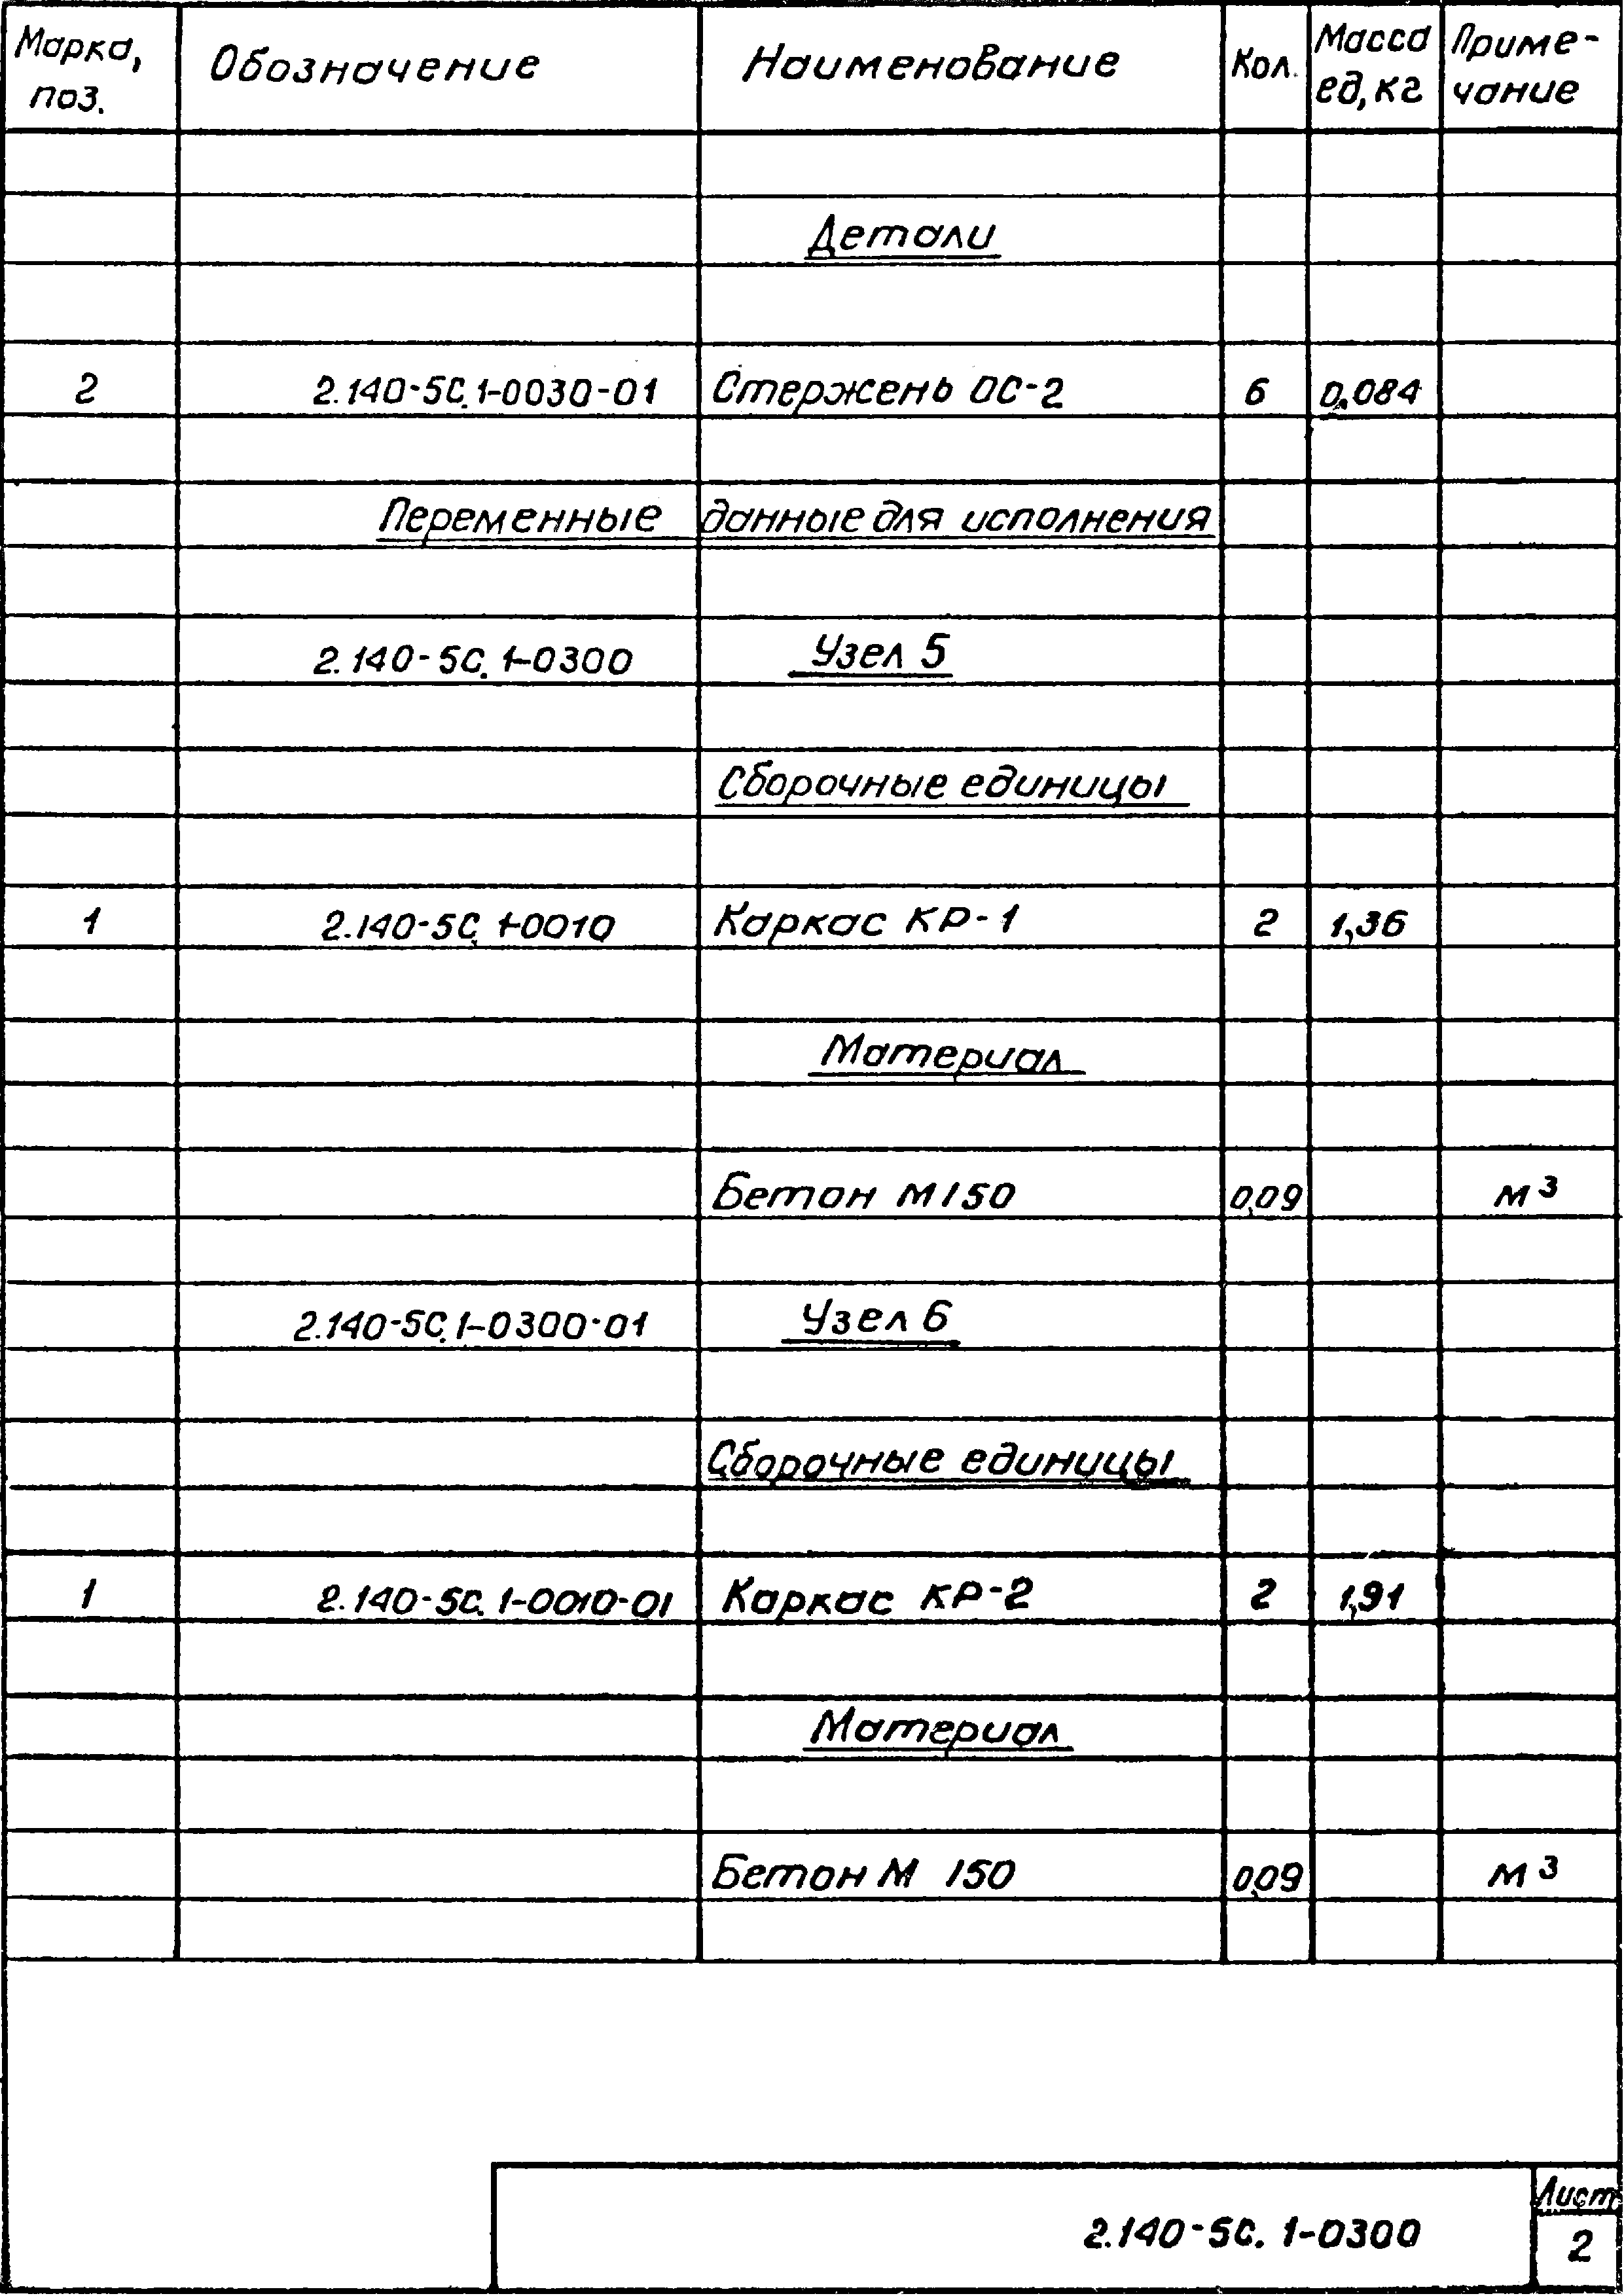 Марка, поз. Обозначение Наименование Кол. Масса ед, кг Приме-чание
Детали
2 2.140-5С.1-0030-01 Стержень ОС-2 6 0,084
Переменные данные для исполнения
2.140-5С.1-0300 Узел 5
Сборочные единицы
1 2.140-5С.1-0010 Каркас КР-1 2 1,36
Материал
Бетон М150 0,09 м³
2.140-5С.1-0300-01 Узел 6
Сборочные единицы
1 2.140-5С.1-0010-01 Каркас КР-2 2 1,91
Материал
Бетон М 150 0,09 м³
2.140-5С.1-0300 Лист
2